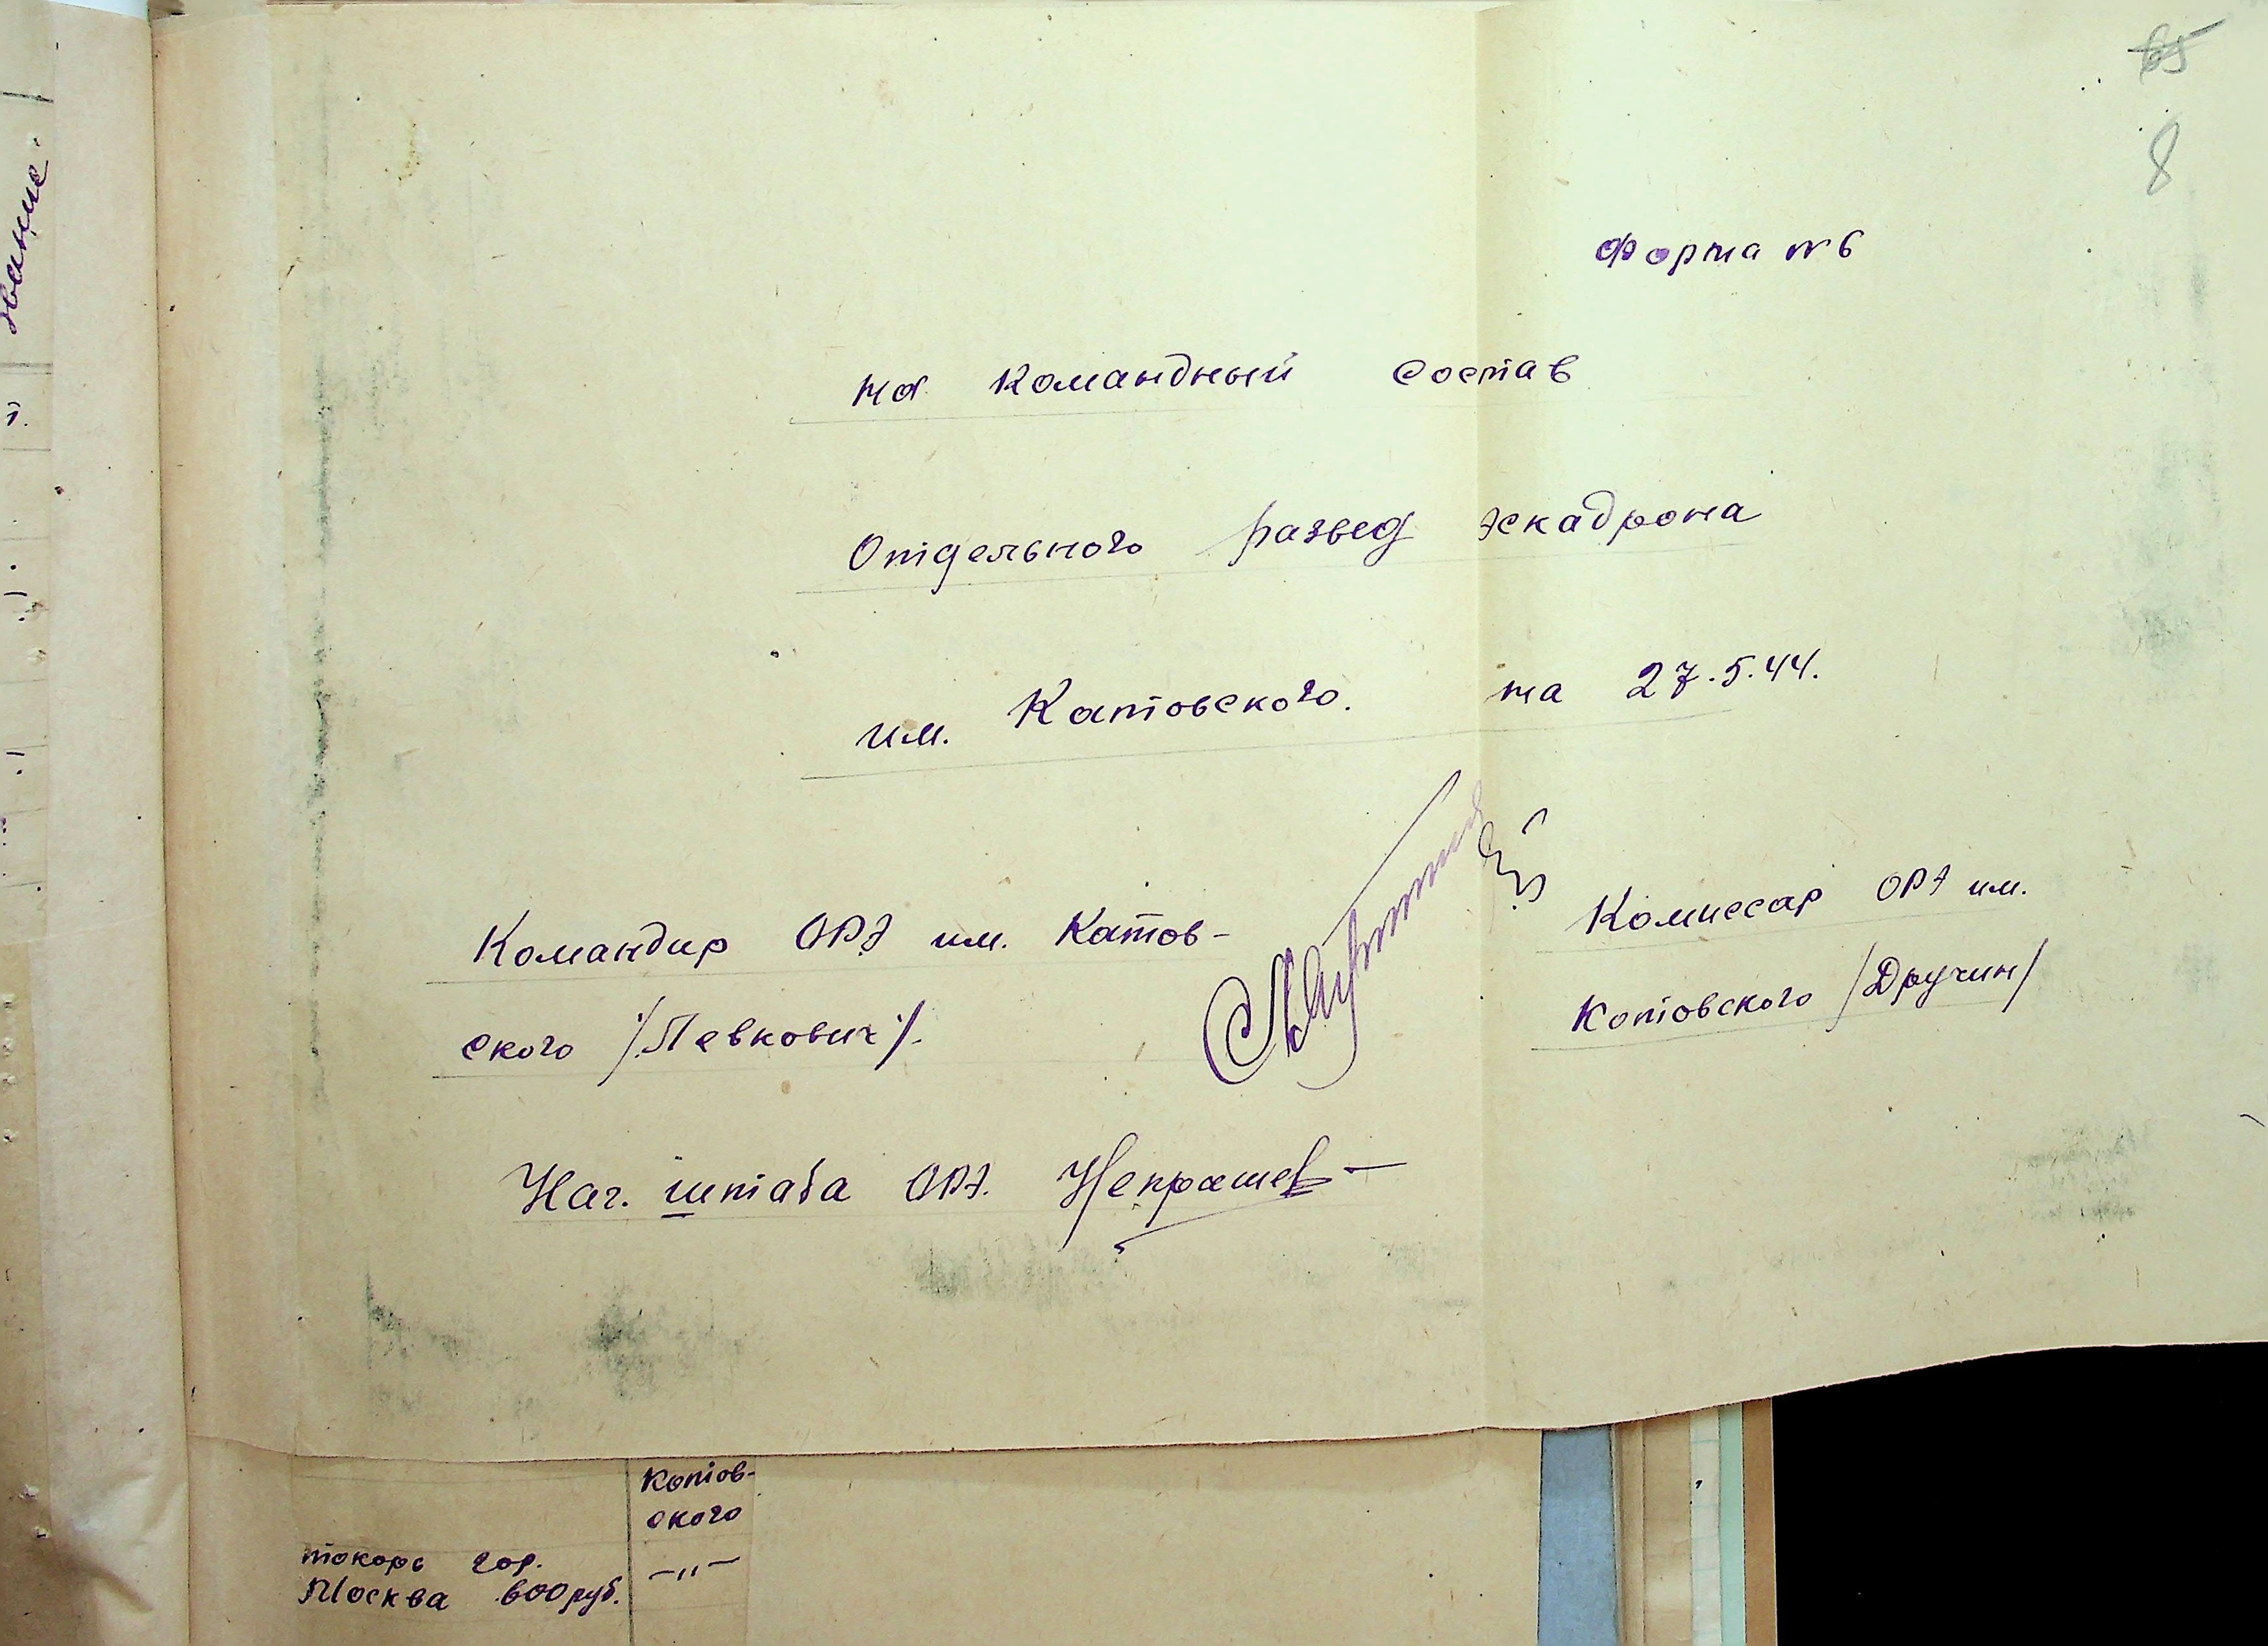 65
8
Форма №6
на командный состав
Отдельного развед эскадрона
им. Катовского. на 27.5.44.
Командир ОРЭ им. Катов-
ского /Левкович/.
Комиссар ОРЭ им.
Котовского /Дручин/
Нач. штаба ОРЭ. Некрашев
звание
Котов-
ского
токарь гор.
Москва 600 руб.
-"-